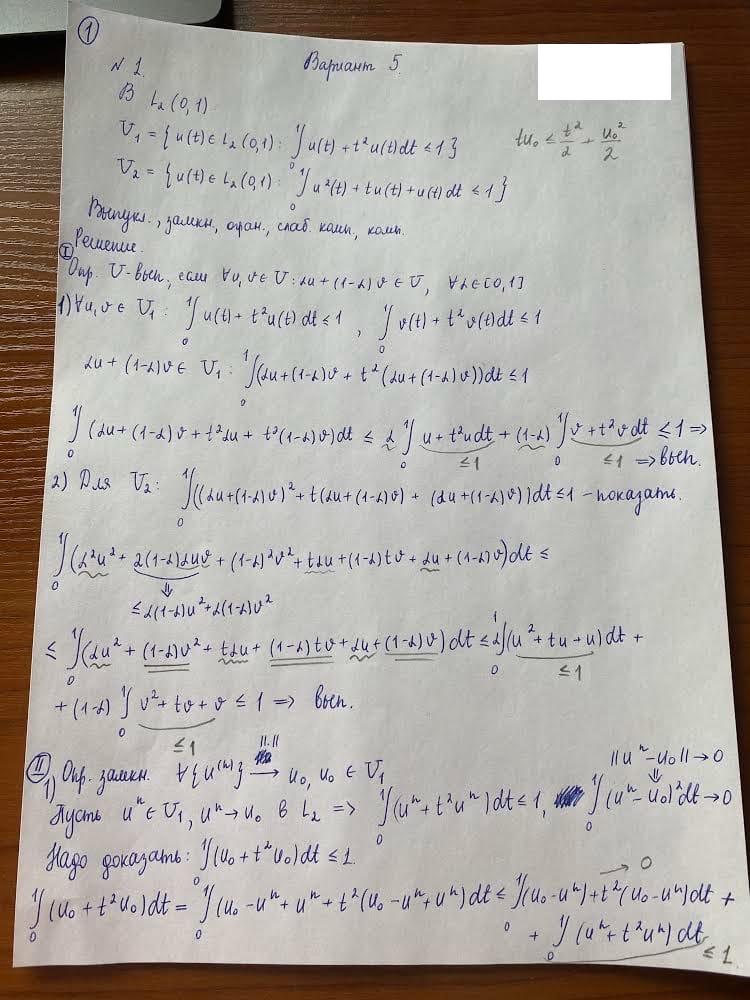 ①
Вариант 5.
N 1.
В L₂(0,1)
U₁ = {u(t) ∈ L₂(0,1): ∫₀¹ u(t) + t²u(t)dt ≤ 1}
tu₀ ≤ t²/2 + u₀²/2
U₂ = {u(t) ∈ L₂(0,1): ∫₀¹ u²(t) + tu(t) + u(t) dt ≤ 1}
Выпукл., замкн., огран., слаб. комп., комп.
Решение.
Ⓘ Опр. U-вып., если ∀u, v ∈ U: αu + (1-α)v ∈ U, ∀α∈[0,1]
1) ∀u, v ∈ U₁: ∫₀¹ u(t) + t²u(t) dt ≤ 1, ∫₀¹ v(t) + t²v(t)dt ≤ 1
αu + (1-α)v ∈ U₁: ∫₀¹ (αu + (1-α)v + t²(αu + (1-α)v))dt ≤ 1
∫₀¹ (αu + (1-α)v + t²αu + t²(1-α)v)dt ≤ α ∫₀¹ u + t²u dt + (1-α) ∫₀¹ v + t²v dt ≤ 1 =>
≤1 ≤1 => вып.
2) Для U₂: ∫₀¹ ((αu + (1-α)v)² + t(αu + (1-α)v) + (αu + (1-α)v))dt ≤ 1 - показать.
∫₀¹ (α²u² + 2(1-α)αuv + (1-α)²v² + tαu + (1-α)tv + αu + (1-α)v)dt ≤
⇓
≤ α(1-α)u² + α(1-α)v²
≤ ∫₀¹ (αu² + (1-α)v² + tαu + (1-α)tv + αu + (1-α)v)dt ≤ α ∫₀¹ (u² + tu + u)dt +
≤1
+ (1-α) ∫₀¹ v² + tv + v ≤ 1 => вып.
≤1
Ⓘⓘ 1) Опр. замкн. ∀{u⁽ⁿ⁾} →‖·‖ u₀, u₀ ∈ U₁
‖uⁿ - u₀‖ → 0
⇓
Пусть uⁿ ∈ U₁, uⁿ → u₀ в L₂ => ∫₀¹ (uⁿ + t²uⁿ)dt ≤ 1, ∫₀¹ (uⁿ - u₀)²dt → 0
Надо доказать: ∫₀¹ (u₀ + t²u₀)dt ≤ 1.
→ 0
∫₀¹ (u₀ + t²u₀)dt = ∫₀¹ (u₀ - uⁿ + uⁿ + t²(u₀ - uⁿ + uⁿ)dt ≤ ∫₀¹ (u₀ - uⁿ) + t²(u₀ - uⁿ)dt +
+ ∫₀¹ (uⁿ + t²uⁿ)dt
≤ 1.